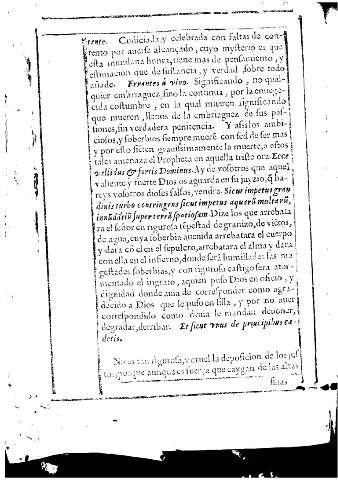 rente. Cudiciada, y celebrada con faltas de con-
tento por auerse alcançado, cuyo mysterio es que
esta mundana honra, tiene mas de pensamento, y
estimacion que de sustancia, y verdad sobre todo
añade. Errantes à vino. Significando, no qual-
quier embriaguez, sino la continua, por la enuege-
cida costumbre, en la qual mueren significando
que mueren, llenos de la embriaguez de sus pas-
siones, sin verdadera penitencia. Y assi los ambi-
ciosos, y soberbios siempre mueren con sed de ser mas
y por esto sienten grauissimamente la muerte, a estos
tales amenaza el Propheta en aquella triste ora. Ecce
validus & fortis Dominus. Ay de vosotros que aquel
valiente y fuerte Dios os aguarda en su juyzio, q̃ ha-
reys vosotros dioses falsos, vendra. Sicut impetus gran
dinis turbo confringens sicut impetus aquarũ multarũ,
inundãtiũ super terrã spatiosam Dize los que arrebata
ra el señor en rigurosa tẽpestad de granizo, de viẽtos,
de agua, cuya soberbia auenida arrebatara el cuerpo
y dara cõ el en el sepulcro, arrebatara el alma y dara
con ella en el infierno, donde será humilladas las ma
gestades soberbias, y con riguroso castigo sera ator-
mentado el ingrato, aquen puso Dios en oficio, y
dignidad donde ama de corresponder como agra-
decido a Dios que le puso en silla, y por no auer
correspondido como deuia le mandan deponer,
degradar, derribar. Et sicut vnus de principibus ca-
detis.
No es tan rigurosa, y cruel la deposicion de los jus
tos, porque aunque es fuerça que caygan de las altas
sillas